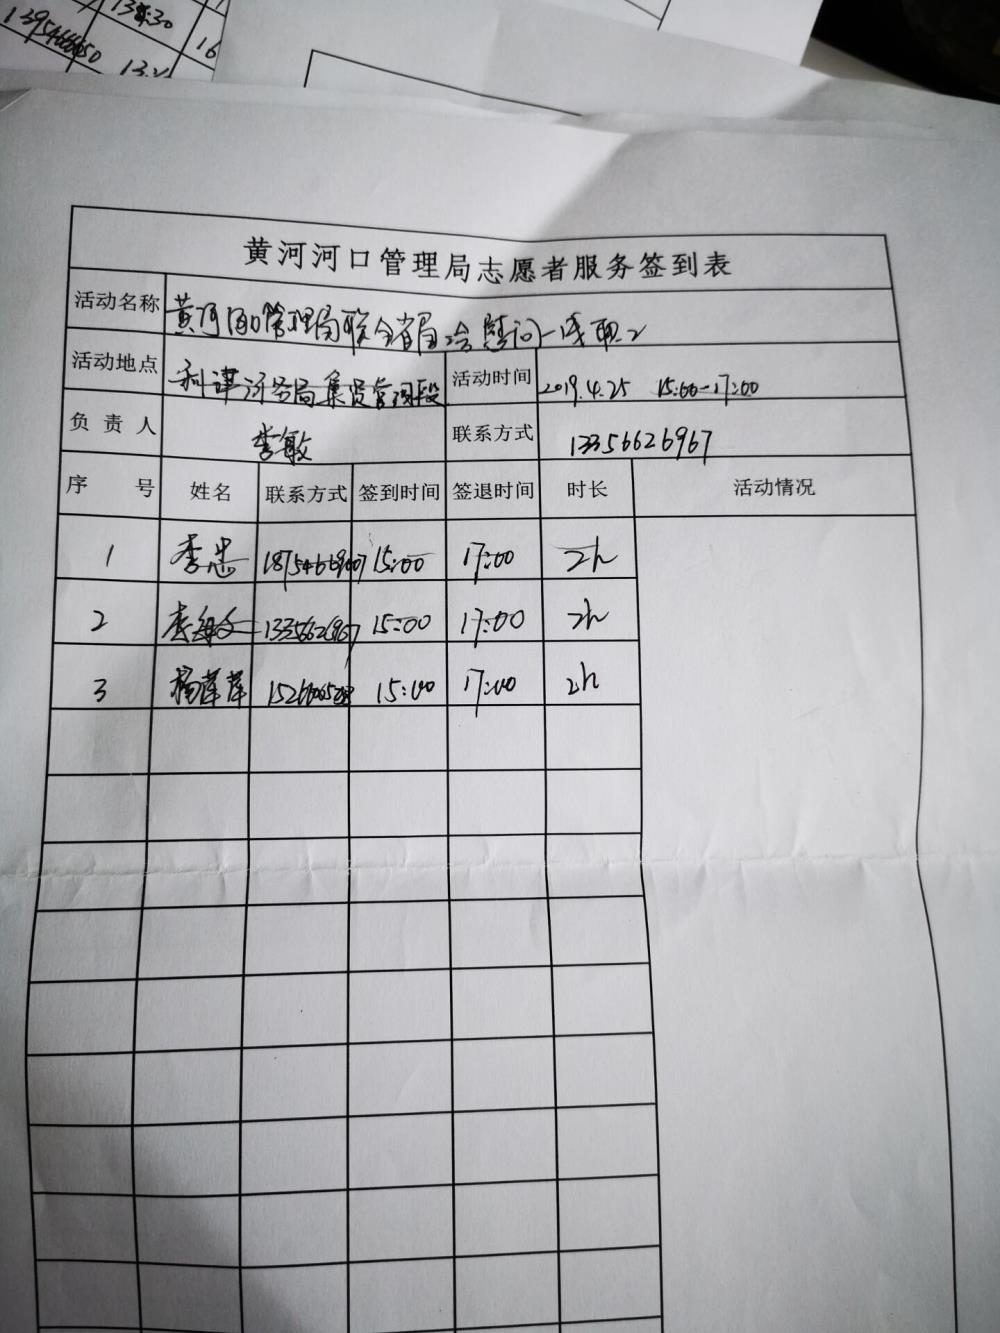 13:30
16
黄河河口管理局志愿者服务签到表
活动名称 黄河河口管理局联合省局 慰问一线职工
活动地点 利津河务局集贤管理段 活动时间 2019.4.25 15:00-17:00
负责人 李敏 联系方式 13356626967
序号 姓名 联系方式 签到时间 签退时间 时长 活动情况
1 李忠 15:00 17:00 2h
2 13356626967 15:00 17:00 2h
3 杨萍萍 15:00 17:00 2h